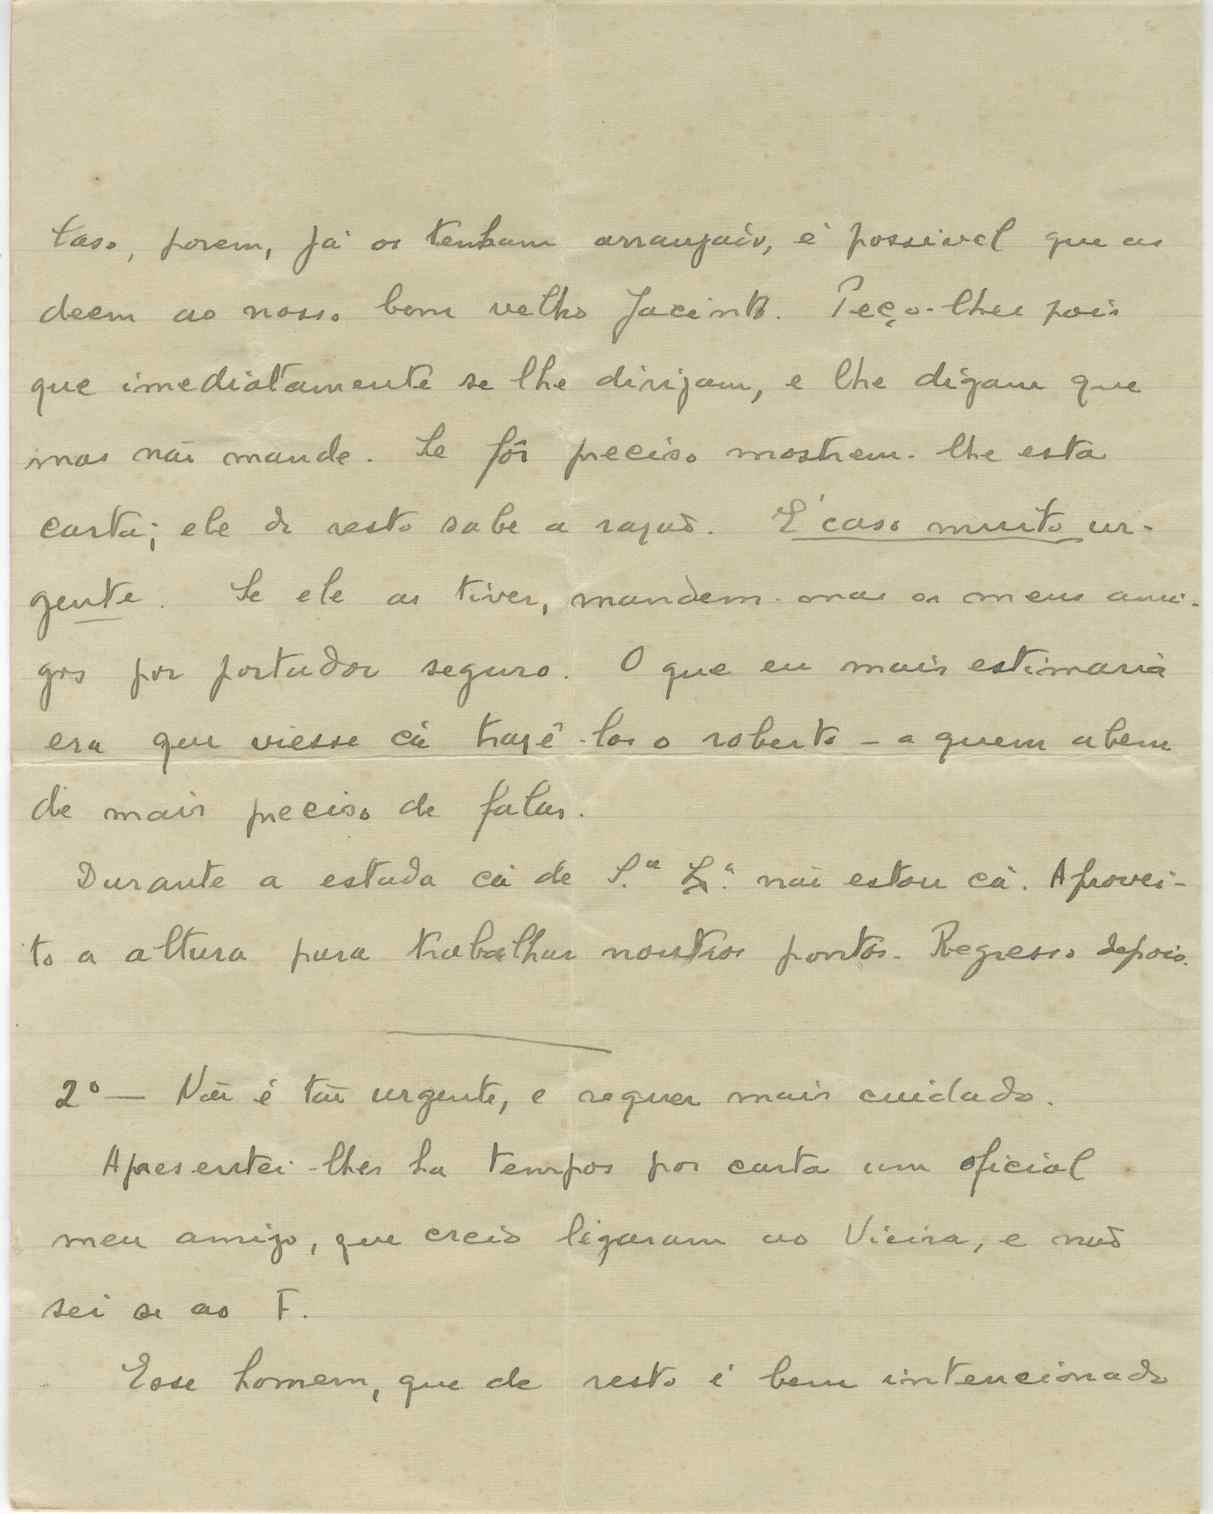 Caso, porem, já os tenham arranjado, é possivel que as
deem ao nosso bom velho Jacinto. Peço-lhes pois
que imediatamente se lhe dirijam, e lhe digam que
mas não mande. Se fôr preciso mostrem-lhe esta
carta; ele de resto sabe a razaõ. É caso muito ur-
gente. Se ele as tiver, mandem-mas os meus ami-
gos por portador seguro. O que eu mais estimaria
era que viesse cá trazê-los o roberto – a quem alem
de mais preciso de falar.
Durante a estada cá de S.ª Ex.ª não estou cá. Aprovei-
to a altura para trabalhar noutros pontos. Regresso depois.
2º — Não é tão urgente, e requer mais cuidado.
Apresentei-lhes ha tempos por carta um oficial
meu amigo, que creio ligaram ao Vieira, e naõ
sei se ao F.
Esse homem, que de resto é bem intencionado